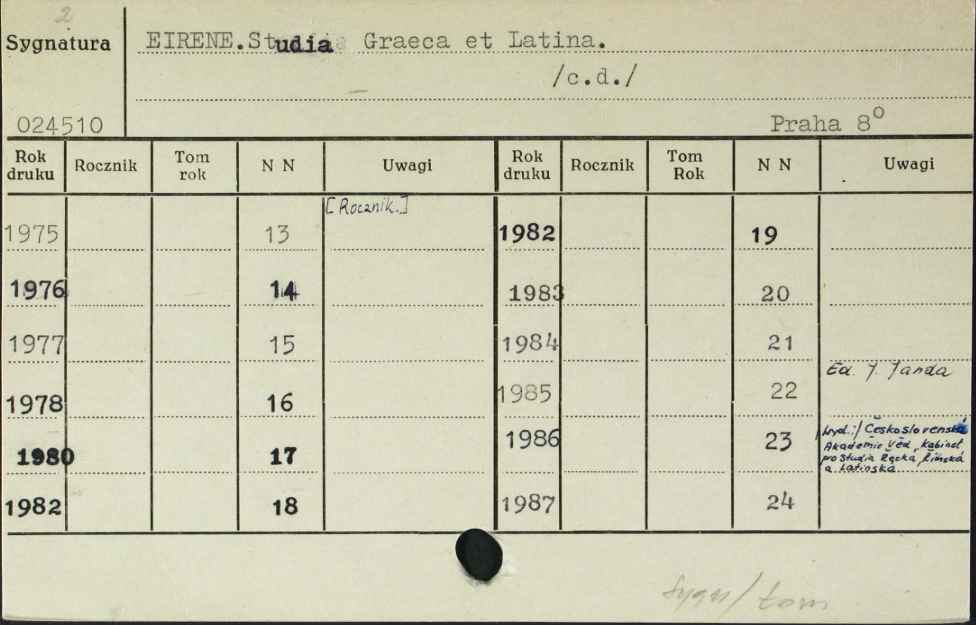 2
Sygnatura
EIRENE. Studia Graeca et Latina.
/c.d./
024510
Praha 8°
Rok druku Rocznik Tom rok N N Uwagi Rok druku Rocznik Tom Rok N N Uwagi
[Rocznik.]
1975 13 1982 19
1976 14 1983 20
1977 15 1984 21
Ed. J. Janda
1978 16 1985 22
1980 17 1986 23
Wyd.:/ Československá
Akademie Věd, Kabinet
pro studia řecká, římská
a latinská
1982 18 1987 24
sygn/tom